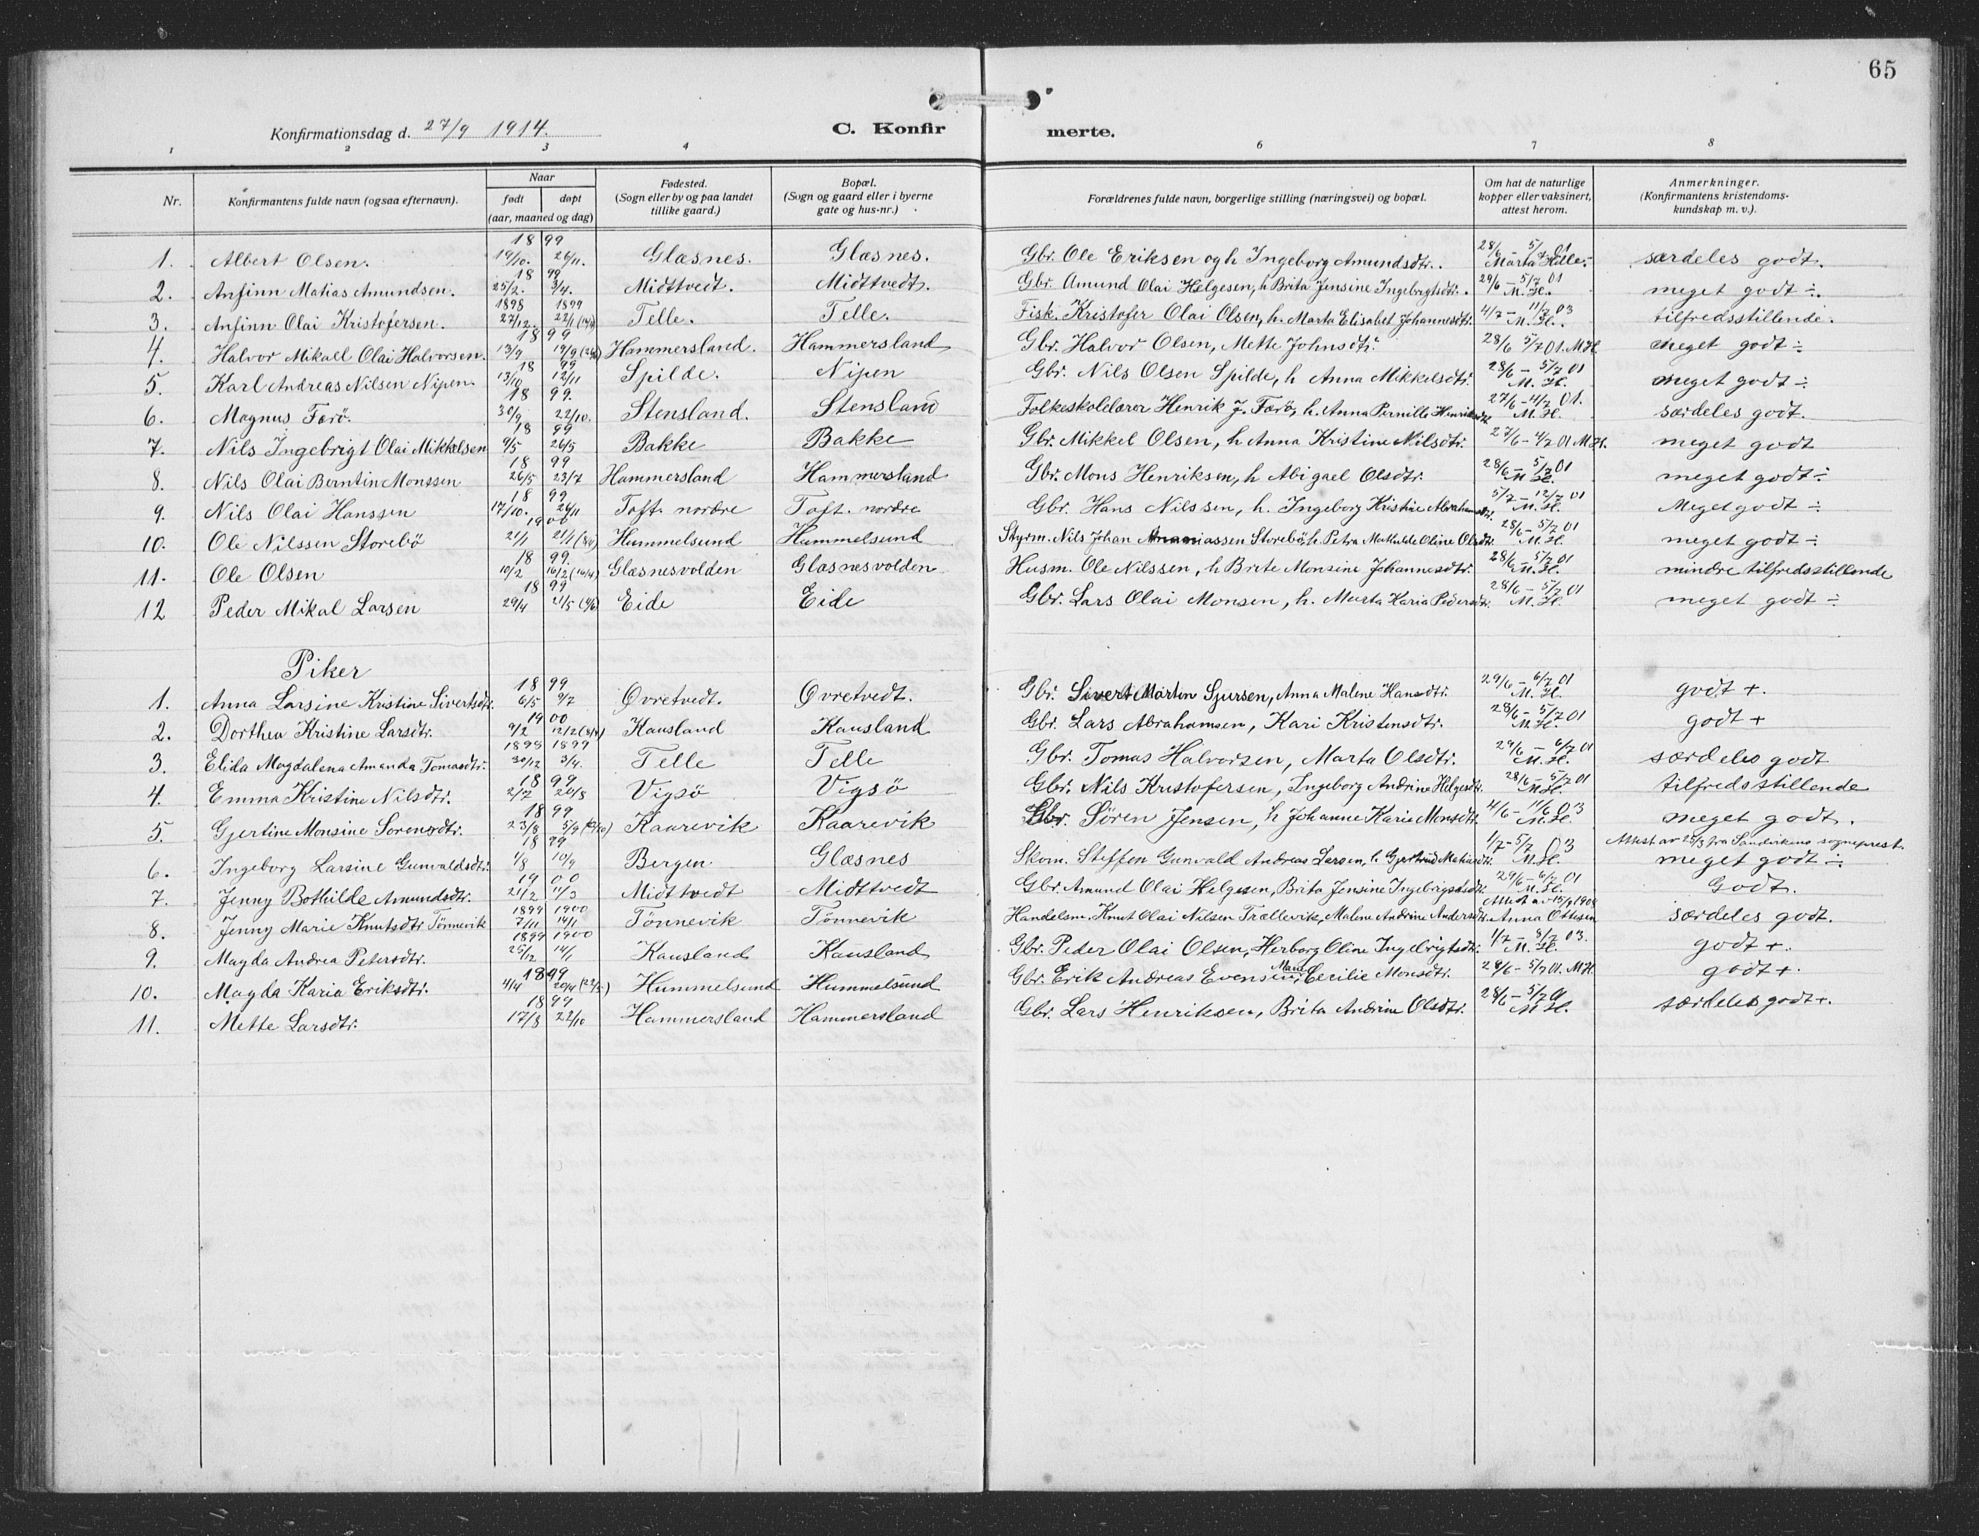 65
Konfirmationsdag d. 27/9 1914. C. Konfir merte.
1 2 3 4 6 7 8
Nr. Konfirmantens fulde navn (ogsaa efternavn). Naar født døpt (aar, maaned og dag) Fødested. (Sogn eller by og paa landet tillike gaard.) Bopæl. (Sogn og gaard eller i byerne gate og hus-nr.) Forældrenes fulde navn, borgerlige stilling (næringsvei) og bopæl. Om hat de naturlige kopper eller vaksinert, attest herom. Anmerkninger. (Konfirmantens kristendoms-kundskap m. v.).
1. Albert Olsen. 1899 19/10. 26/11. Glæsnes. Glæsnes. Gbr. Ole Eriksen og h. Ingeborg Amundsdtr. 28/6 – 5/7 01 Marta Helle. særdeles godt.
2. Anfinn Matias Amundsen. 1899 25/2. 3/4. Midttvedt. Midttvedt. Gbr. Amund Olai Helgesen, h Brita Jensine Ingebrigtsdtr. 29/6 – 5/7 01 M. H. meget godt ÷.
3. Anfinn Olai Kristofersen. 1898 27/12. 1899 22/1 Telle. Telle. Fisk. Kristofer Olai Olsen, h. Marta Elisabet Johannesdtr. 4/7 – 11/7 03 M. H. tilfredsstillende.
4. Halvor Mikall Olai Halvorsen. 1899 13/9 19/9 Hammersland. Hammersland Gbr. Halvor Olsen, Mette Johnsdtr. 28/6 5/7 01. M H. meget godt ÷
5. Karl Andreas Nilsen Nipen. 1899 13/10 12/11 Spilde. Nipen Gbr. Nils Olsen Spilde, h Anna Mikkelsdtr. 28/6 – 5/7 01 M. H. meget godt ÷
6. Magnus Færö. 1899. 30/9 22/10. Stensland. Stensland Folkeskolelærer Henrik J. Færö, h. Anna Pernille Henriksdtr. 27/6 – 4/7 01. M. H. særdeles godt.
7. Nils Ingebrigt Olai Mikkelsen 1899 9/5 26/5 Bakke Bakke Gbr. Mikkel Olsen, h Anna Kristine Nilsdtr. 27/6 – 4/7 01 M. H. meget godt
8. Nils Olai Berntin Monssen 1899 26/5 23/7 Hammersland Hammersland Gbr. Mons Henriksen, h Abigael Olsdtr. 28/6 – 5/7 01 M. H. meget godt ÷
9. Nils Olai Hanssen 1899 17/10. 26/11 Toft. nordre Toft. nordre Gbr. Hans Nilssen, h. Ingeborg Kristine Abrahamsdtr. 5/7 – 12/7 01 M. H. Meget godt ÷
10. Ole Nilssen Storebö 1900 2/1 21/1 Hummelsund Hummelsund Styrm. Nils Johan Ananiassen Storebö, h. Petra Mathilde Oline Olsdtr. 28/6 – 5/7 01 M. H. meget godt ÷
11. Ole Olsen 1899. 10/2 16/2 Glæsnesvolden Glæsnesvolden Husm. Ole Nilssen, h Brite Monsine Johannesdtr. 28/6 – 5/7 01 M. H. mindre tilfredsstillende
12 Peder Mikal Larsen 1899 29/4 Eide Eide Gbr. Lars Olai Monsen, h. Marta Karia Pedersdtr. 28/6 – 5/7 01 M. H. meget godt ÷
Piker
1. Anna Larsine Kristine Sivertsdtr. 1899 6/5 9/7 Øvretvedt. Øvretvedt. Gbr. Sivert Martin Sjursen, Anna Malene Hansdtr. 29/6 – 6/7 01 M. H. godt +.
2. Dorthea Kristine Larsdtr. 1900 9/2 12/2 Kausland Kausland Gbr. Lars Abrahamsen, Kari Kristensdtr. 28/6 – 5/7 01 M. H. godt +
3. Elida Magdalena Amanda Tomasdtr. 1898 30/12 1899 3/4. Telle Telle Gbr. Tomas Halvorsen, Marta Olsdtr. 29/6 – 6/7 01 M. H. særdeles godt
4. Emma Kristine Nilsdtr. 1899 2/7 20/8 Vigsö Vigsö Gbr. Nils Kristofersen, Ingeborg Andrine Helgesdtr. 28/6 – 5/7 01 M. H. tilfredsstillende
5. Gjertine Monsine Sorensdtr. 1899 23/8 5/9 Kaarevik Kaarevik Gbr. Sören Jensen, h Johanne Karie Monsdtr. 4/6 – 11/6 03 M. H. meget godt.
6. Ingeborg Larsine Gunvaldsdtr. 1899 1/8 10/9 Bergen Glæsnes Skom. Steffen Gunvald Andreas Larsen, h. Gjertrud Matiasdtr. 1/7 – 5/7 03 M. H. Attest av 25/3 fra Sandvikens sogneprest. meget godt ÷
7. Jenny Bothilde Amundsdtr. 1900 21/2 11/3 Midttvedt Midttvedt Gbr. Amund Olai Helgesen, Brita Jensine Ingebrigtsdtr. 29/6 – 6/7 01 M. H. Godt.
8. Jenny Marie Knutsdtr. Tönnevik 1899 7/11 1900 14/1 Tönnevik Tönnevik Handelsm. Knut Olai Nilsen Trællevik, Malene Andrine Andersdtr. Attest av 15/9 1908 Anna Ottesen særdeles godt.
9. Magda Andrea Petersdtr. 1899 25/12 1900 14/1 Kausland Kausland Gbr. Peder Olai Olsen, Herborg Oline Ingebrigtsdtr. 1/7 – 8/7 03. M. H. godt +.
10. Magda Karia Eriksdtr. 1899 4/4 20/4 Hummelsund Hummelsund Gbr. Erik Andreas Evensen, Mari Cecilie Monsdtr. 28/6 – 5/7 01. M H. godt +.
11. Mette Larsdtr. 1899 17/8 22/10 Hammersland Hammersland Gbr. Lars Henriksen, Brita Andrine Olsdtr. 28/6 – 5/7 M H. særdeles godt +.